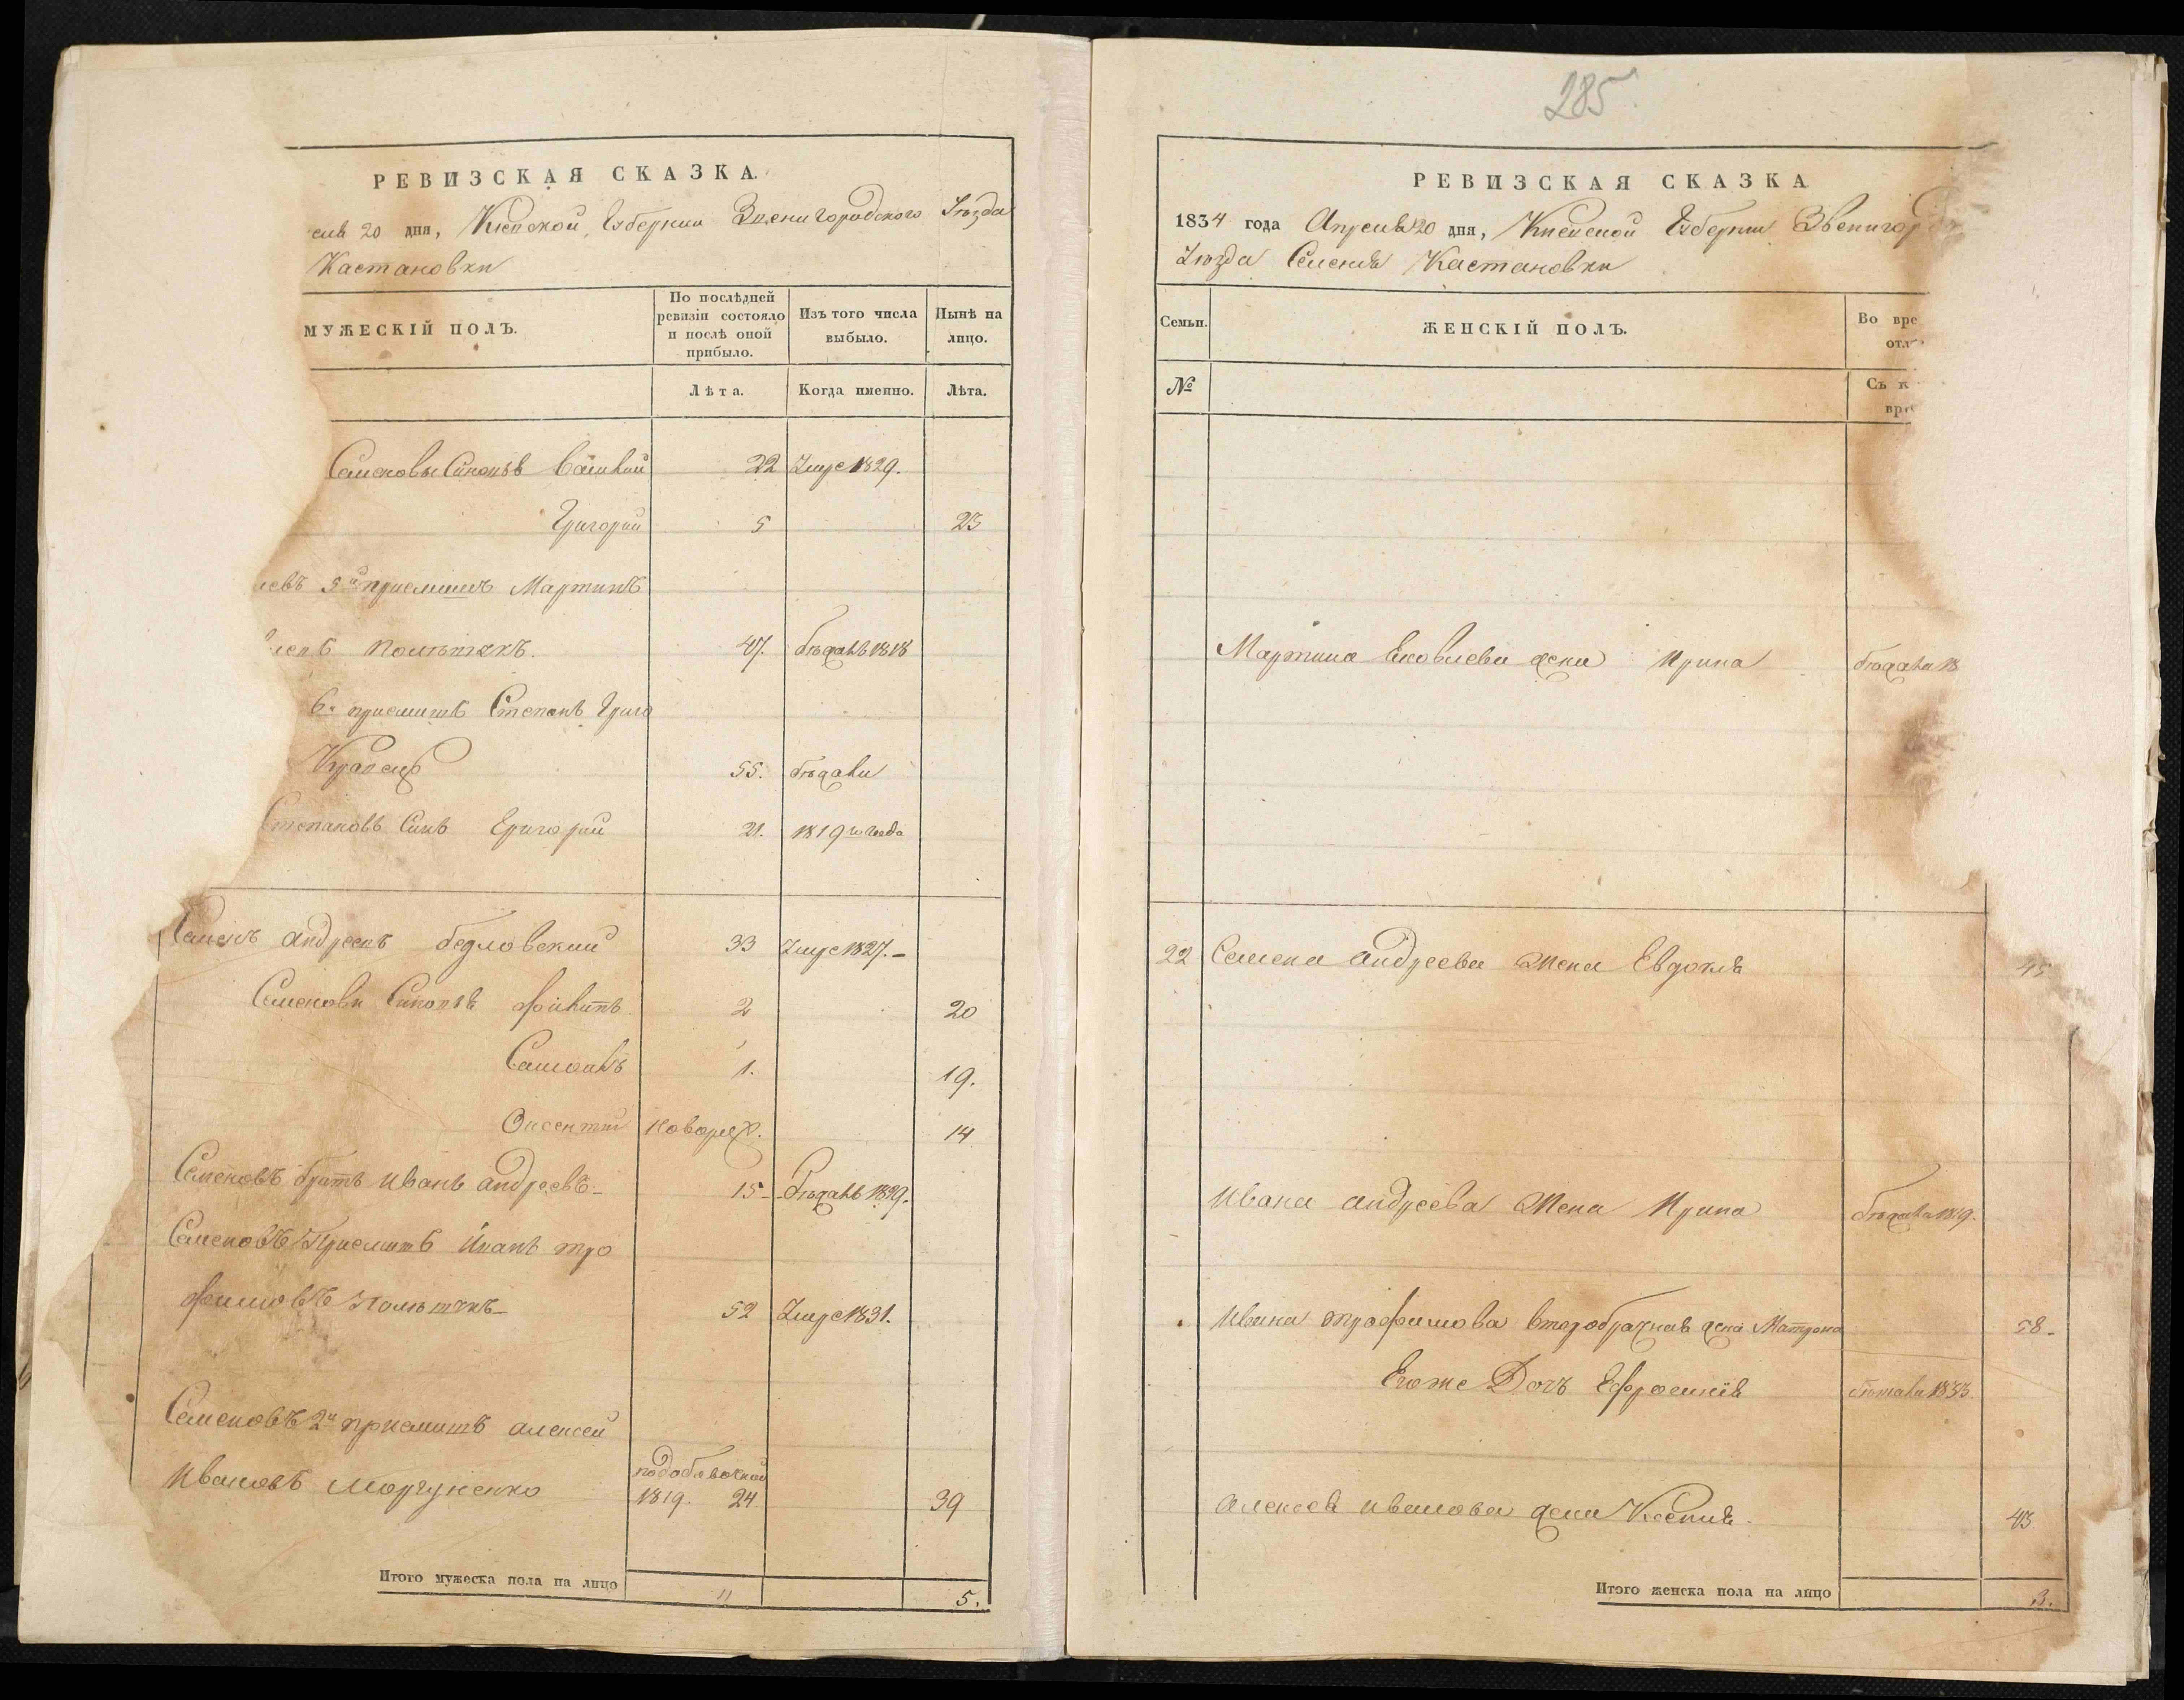 285
РЕВИЗСКАЯ СКАЗКА.
еля 20 дня, Киевской Губернии Звенигородского Уезда
Кастановки
МУЖЕСКІЙ ПОЛЪ.
По послѣдней ревизіи состояло и послѣ оной прибыло.
Изъ того числа выбыло.
Нынѣ на лицо.
Лѣта.
Когда именно.
Лѣта.
Семеновы Синовья Василий 22 Умре 1829.
Григорий 5 23
5й приемишъ Мартинъ
47. бежалъ 1818
6й приемишъ Степанъ Григо
55. бежали
Степановъ Синъ Григорий 21. 1819го года
Семенъ андреевъ 33 Умре 1827.-
Семенови Синовья Филипъ 2 20
Самойлъ 1. 19.
Оксентий новорож. 14
Семеновъ братъ иванъ андреевъ- 15- бежалъ 1829.
Семеновъ Приемишъ Иванъ тро
фимовъ 52 Умре 1831.
Семеновъ 2й приемишъ алексей
ивановъ Моргуненко 1819. 24 39
Итого мужеска пола на лицо 11 5.
РЕВИЗСКАЯ СКАЗКА
1834 года Апреля 20 дня, Киевской Губернии Звенигород
Уезда Селения Кастановки
Семьи.
ЖЕНСКІЙ ПОЛЪ.
Во вре
отл
№
Съ к
вре
Мартина Яковлева жена Ирина бежала 18
22 Семена андреева жена Евдокия 45
Ивана андреева жена Ирина бежала 1819.
Ивана трофимова второбрачная жена Матрона 58-
Егоже Дочь Ефросиния 1833.
Алексея иванова жена Ксения 43
Итого женска пола на лицо 3.